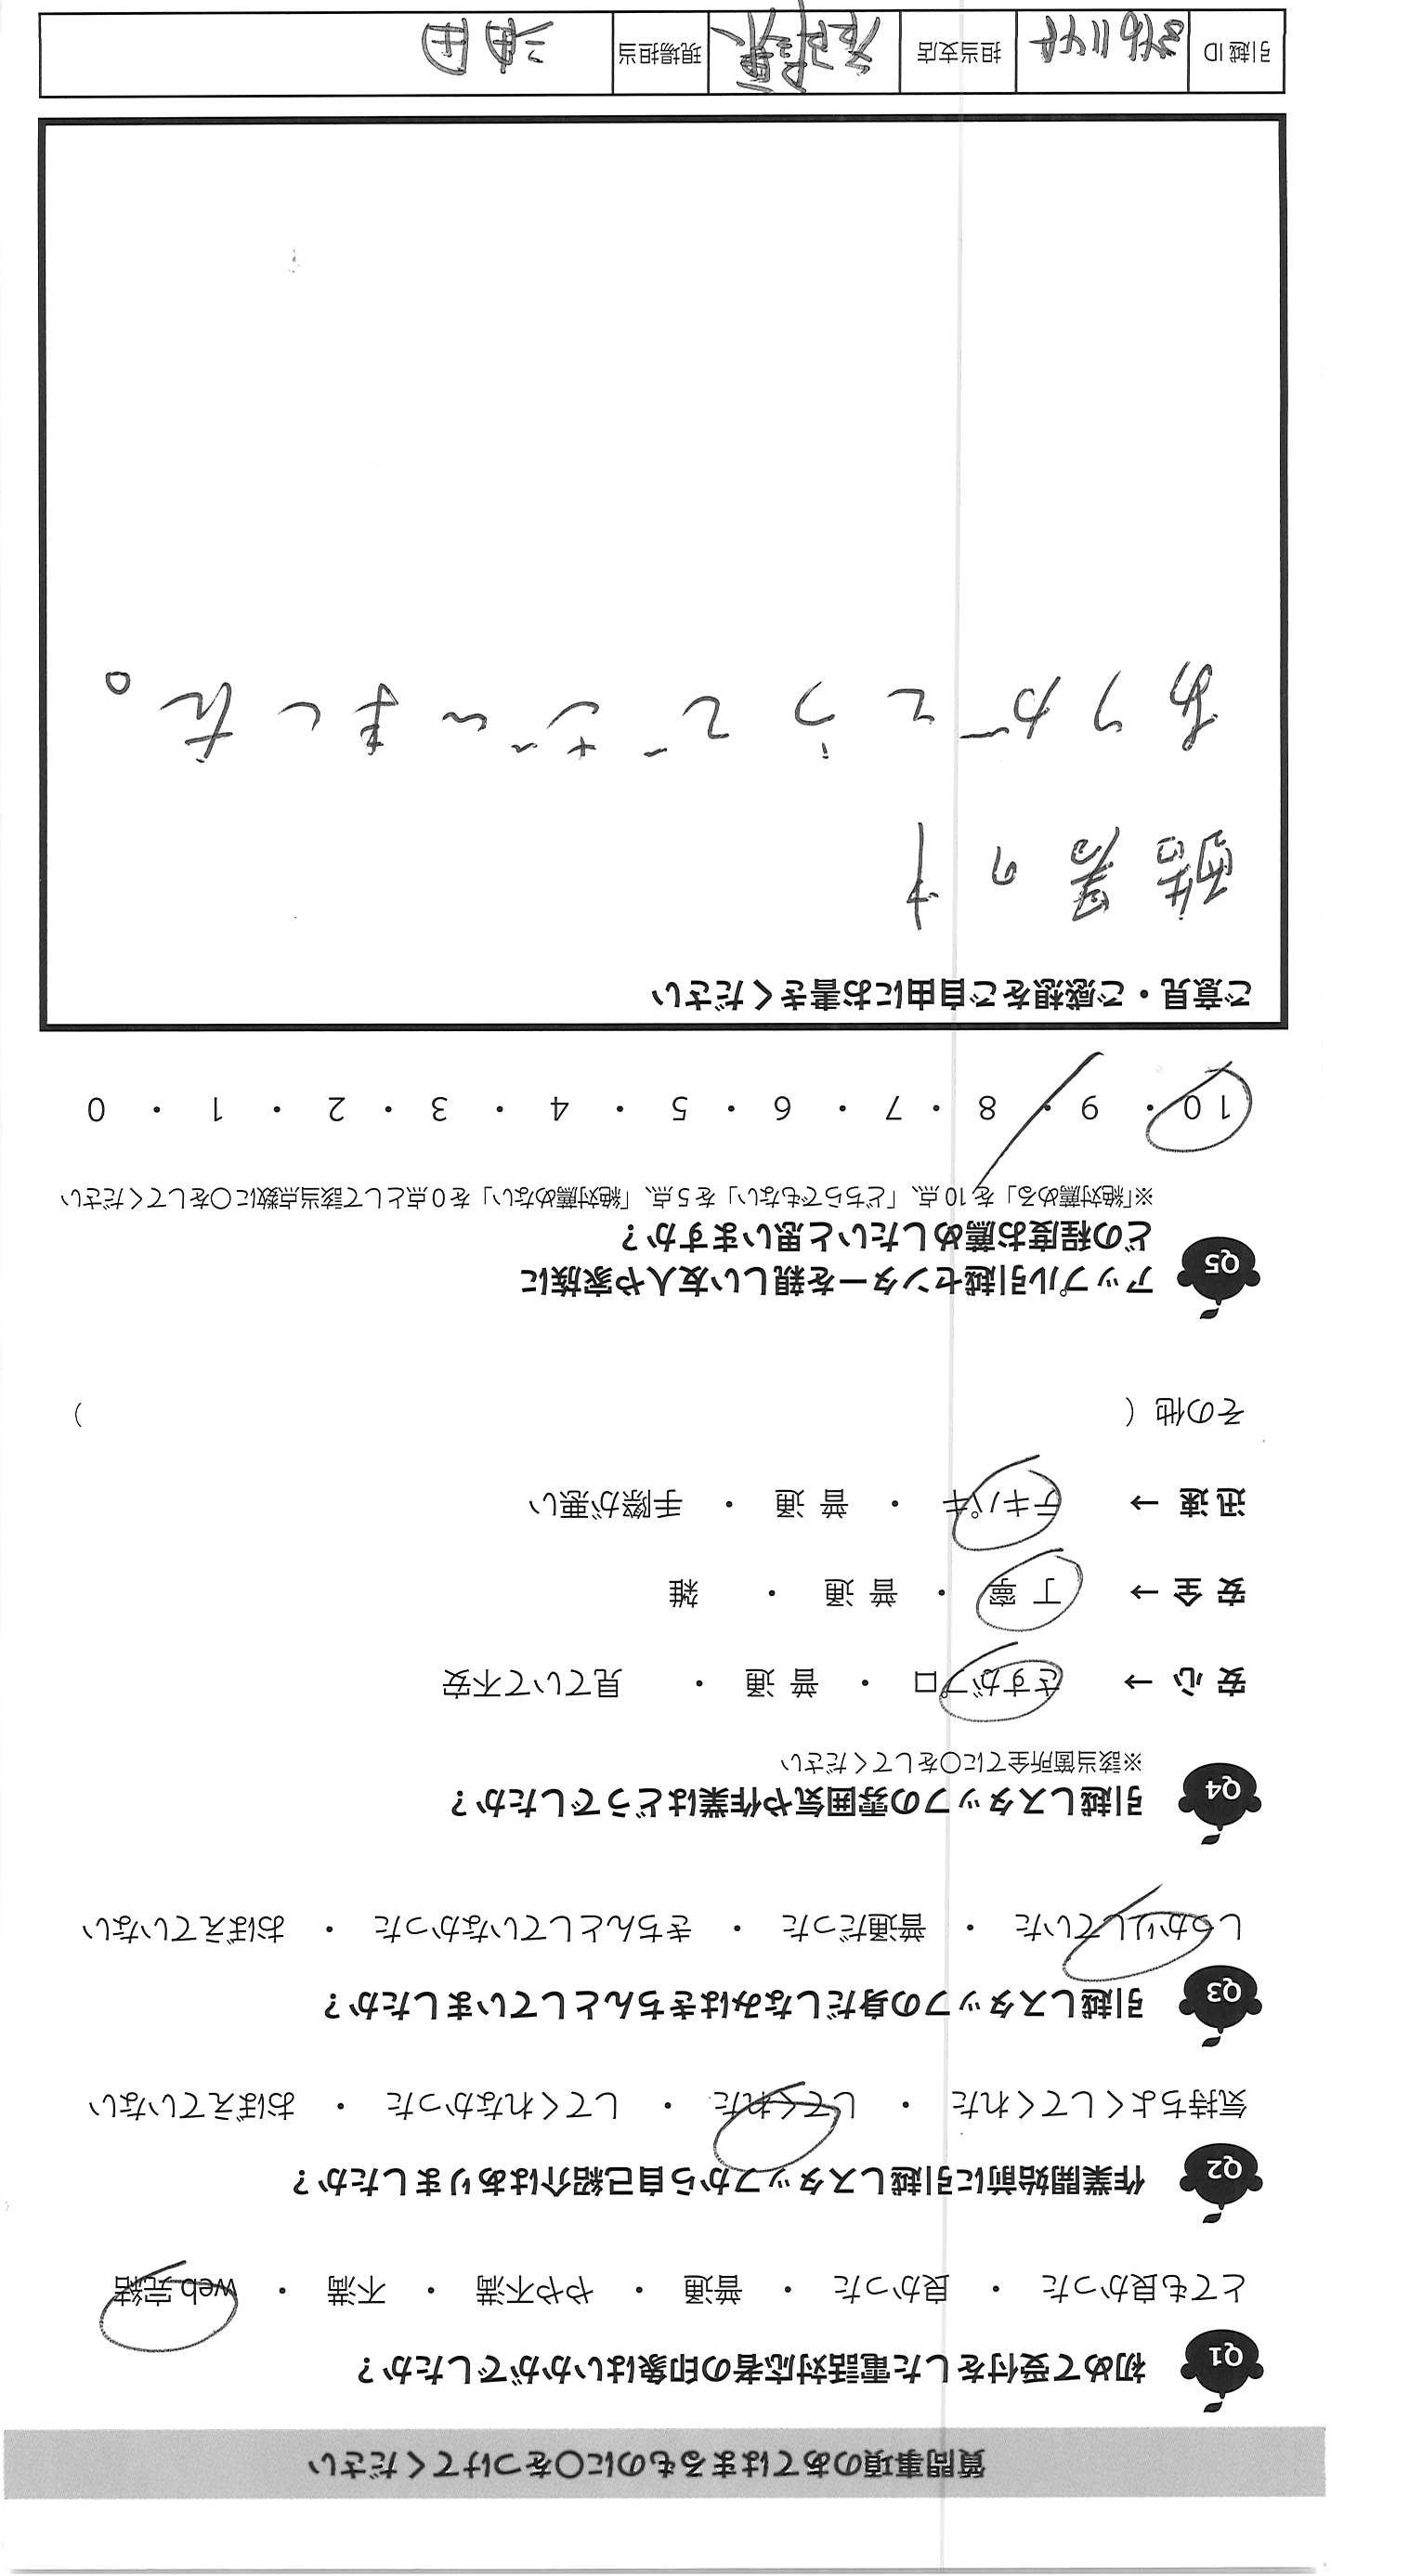 質問事項のあてはまるものに〇をつけてください
Q1 初めて受付をした電話対応者の印象はいかがでしたか？
とても良かった ・ 良かった ・ 普通 ・ やや不満 ・ 不満 ・ web完結
Q2 作業開始前に引越しスタッフから自己紹介はありましたか？
気持ちよくしてくれた ・ してくれた ・ してくれなかった ・ おぼえていない
Q3 引越しスタッフの身だしなみはきちんとしていましたか？
しっかりしていた ・ 普通だった ・ きちんとしていなかった ・ おぼえていない
Q4 引越しスタッフの雰囲気や作業はどうでしたか？
※該当箇所全てに〇をしてください
安心 → さすがプロ ・ 普通 ・ 見ていて不安
安全 → 丁寧 ・ 普通 ・ 雑
迅速 → テキパキ ・ 普通 ・ 手際が悪い
その他（ ）
Q5 アップル引越センターを親しい友人や家族に
どの程度お薦めしたいと思いますか？
※「絶対薦める」を10点、「どちらでもない」を5点、「絶対薦めない」を0点として該当点数に〇をしてください
10 ・ 9 ・ 8 ・ 7 ・ 6 ・ 5 ・ 4 ・ 3 ・ 2 ・ 1 ・ 0
ご意見・ご感想をご自由にお書きください
酷暑の中
ありがとうございました。
引越ID 担当支店 現場担当 油田